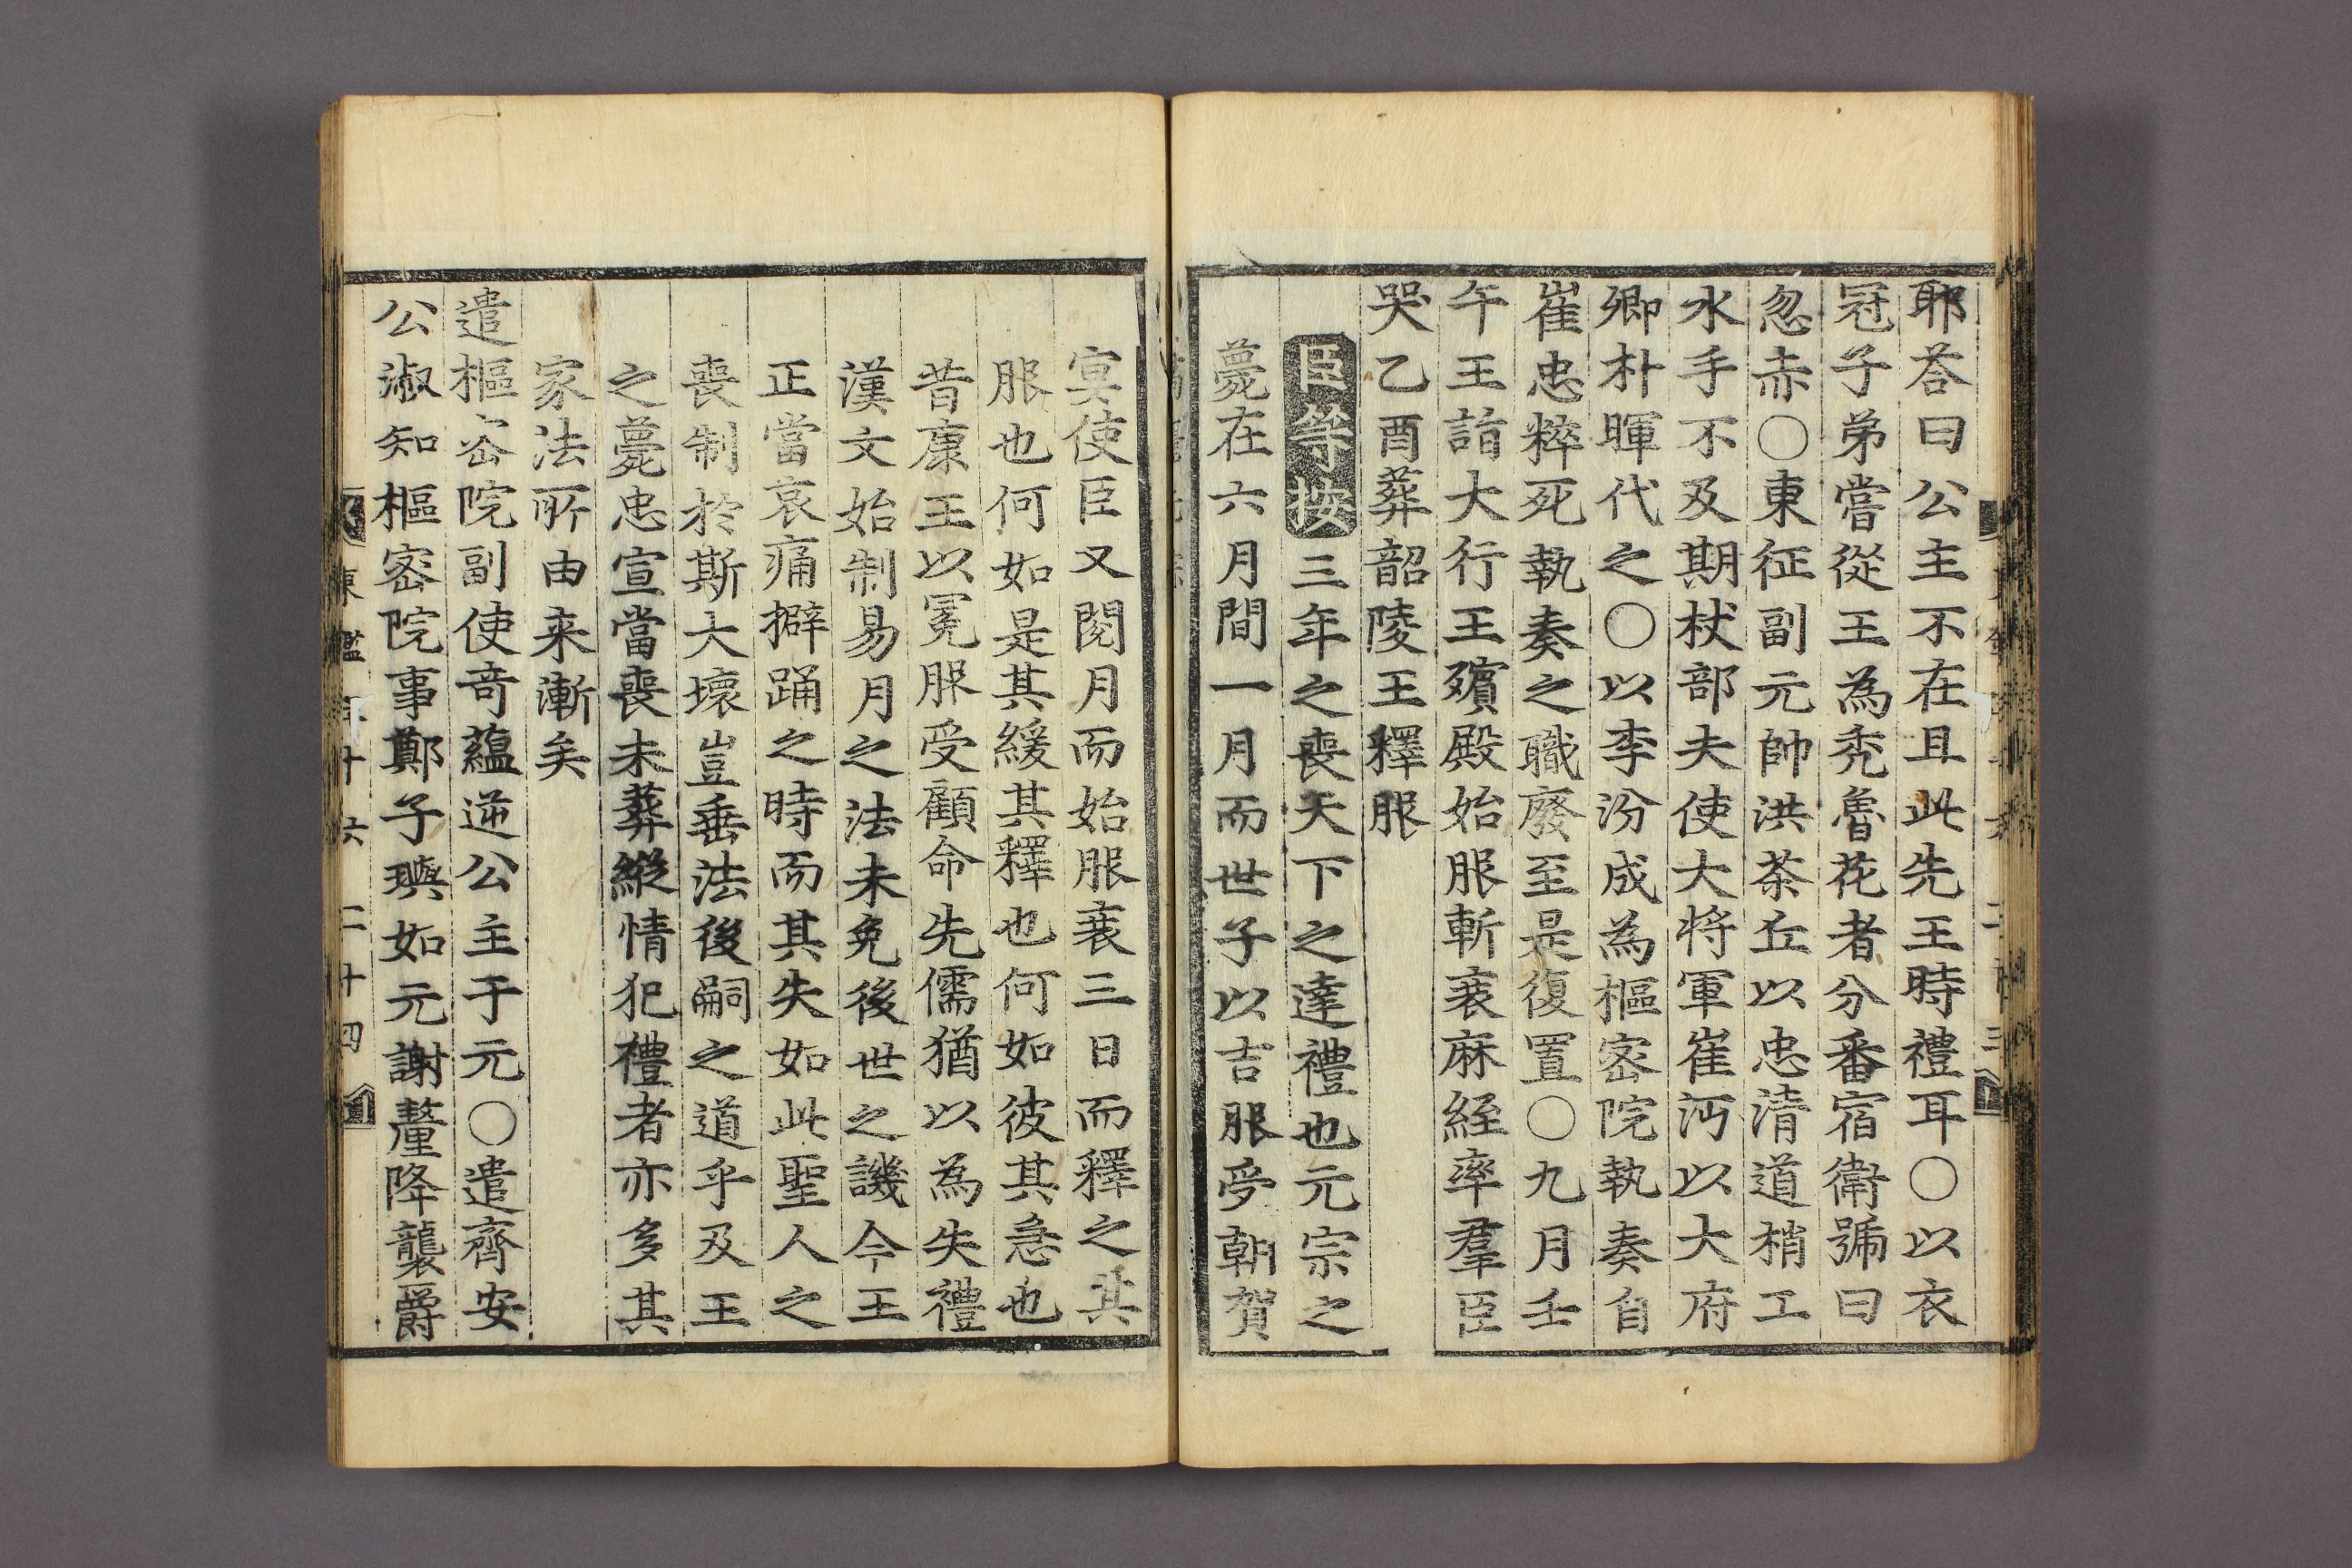 耶荅曰公主不在且此先王時禮耳○以衣
冠子弟嘗從王為秃魯花者分番宿衛號曰
忽赤○東征副元帥洪茶丘以忠清道梢工
水手不及期杖部夫使大將軍崔沔以大府
卿朴暉代之○以李汾成為樞密院執奏自
崔忠粹死執奏之職廢至是復置○九月壬
午王詣大行王殯殿始服斬衰麻絰率羣臣
哭乙酉葬韶陵王釋服
臣等按三年之喪天下之達禮也元宗之
薨在六月間一月而世子以吉服受朝賀
宴使臣又閱月而始服衰三日而釋之其
服也何如是其緩其釋也何如彼其急也
昔康王以冕服受顧命先儒猶以為失禮
漢文始制易月之法未免後世之譏今王
正當哀痛擗踊之時而其失如此聖人之
喪制於斯大壞豈垂法後嗣之道乎及王
之薨忠宣當喪未葬縱情犯禮者亦多其
家法所由来漸矣
遣樞密院副使竒蘊逆公主于元○遣齊安
公淑知樞密院事鄭子璵如元謝釐降襲爵
東鑑 十六 二十四